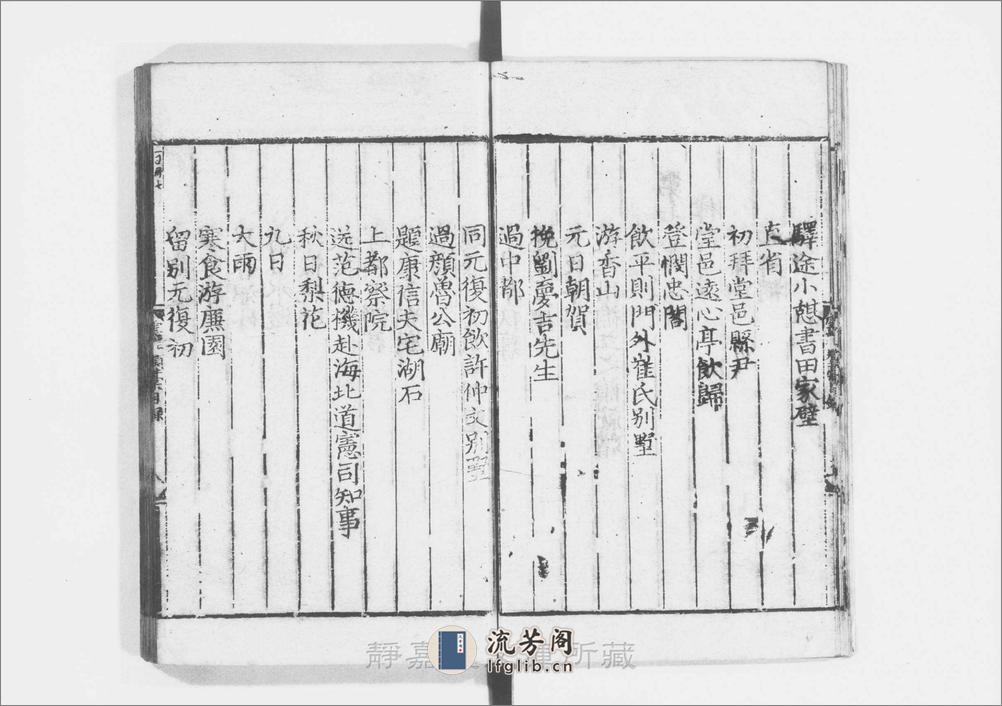 驛途小憇書田家壁
直省
初拜堂邑縣尹
堂邑遠心亭飲歸
登憫忠閣
飲平則門外崔氏別墅
游香山
元日朝賀
挽劉慶吉先生
過中都
同元復初飲許仲文別墅
過顔魯公廟
題康信夫宅湖石
上都察院
送范德機赴海北道憲司知事
秋日梨花
九日
大雨
寒食游廉園
留別元復初
靜嘉 所藏
流芳阁
lfglib.cn